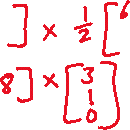 ] × 1/2 [
8] × [3
1
0]